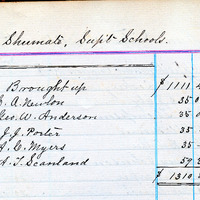 Shumate, Supt Schools.
Brought up $1111
J. A. Newlon 35 0
Geo. W. Anderson 35 0
J. J. Porter 35 0
A. C. Myers 35 0
A. T. Scanland 59 3
$1310